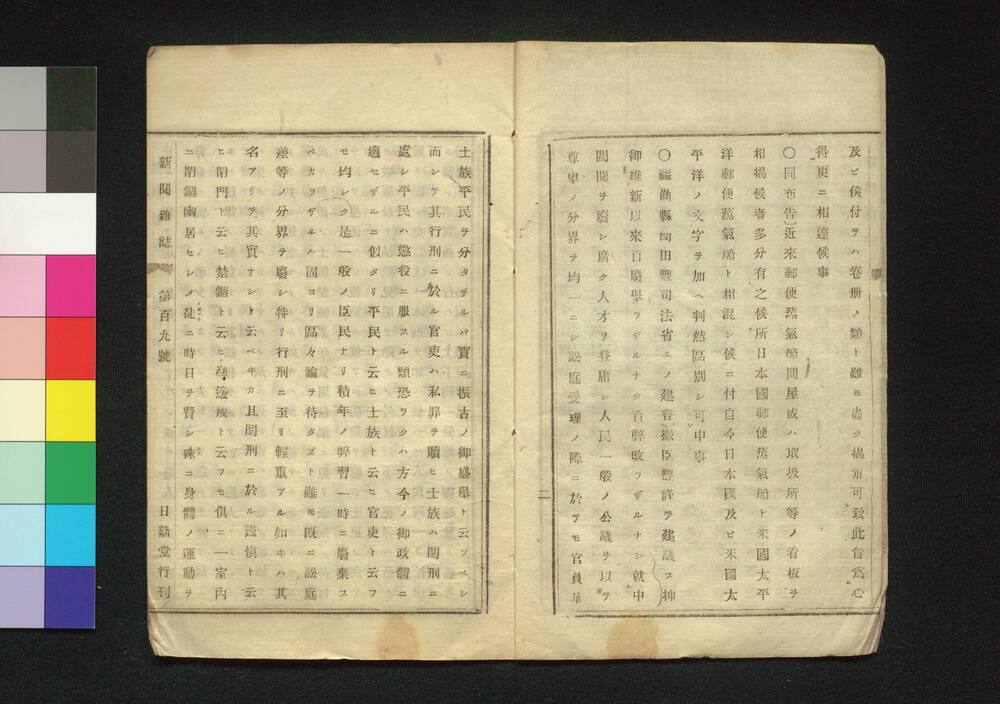 及ヒ侯付ヲハ卷册ノ類ト雖𪜈盡ク揭[?]可致此旨爲心
得更ニ相達候事
〇同布告〕近來郵便蒸氣船問屋或ハ取扱所等ノ看板ヲ
相揭候者多分有之候所日本國郵便蒸氣船ト米國太平
洋郵便蒸氣船ト相混シ候ニ付自今日本國及ヒ米國太
平洋ノ文字ヲ加ヘ判然區別シ可申事
〇福島縣岡田豐司法省エノ建言徽臣豐謹テ建議ス抑
御維新以來百廢擧ラザルナク百弊改ラザルナシ就中
閥閱ヲ廢シ廣ク人才ヲ登庸シ人民一般ノ公議ヲ以テ
尊卑ノ分界ヲ均一ニシ訟庭受理ノ際ニ於テモ官員華
二
士族平民ヲ分タザルハ實ニ振古ノ御盛擧ト云ツベシ
而シテ其行刑ニ於ル官吏ハ私罪ヲ贖ヒ士族ハ閏刑ニ
處シ平民ハ懲役ニ服スル類恐ラクハ方今ノ御政體ニ
適セザルニ似タリ平民ト云ヒ士族ト云ヒ官吏ト云フ
モ均シク是一般ノ臣民ナリ積年ノ弊習一時ニ廢棄ス
ベカラザルハ固ヨリ區々論ヲ待タズト雖𪜈既ニ訟庭
差等ノ分界ヲ廢シ特リ行刑ニ至リ輕重アル如キハ其
名アリテ其實ナシト云ベキカ且閏刑ニ於ル謹愼ト云
ヒ閉門ト云ヒ禁錮ト云ヒ邊戍ト云フモ俱ニ一室內
ニ閉錮幽居セシメ徒ニ時日ヲ費シ殊ニ身體ノ運動ヲ
新聞雜誌 第百九號 日新堂行刊